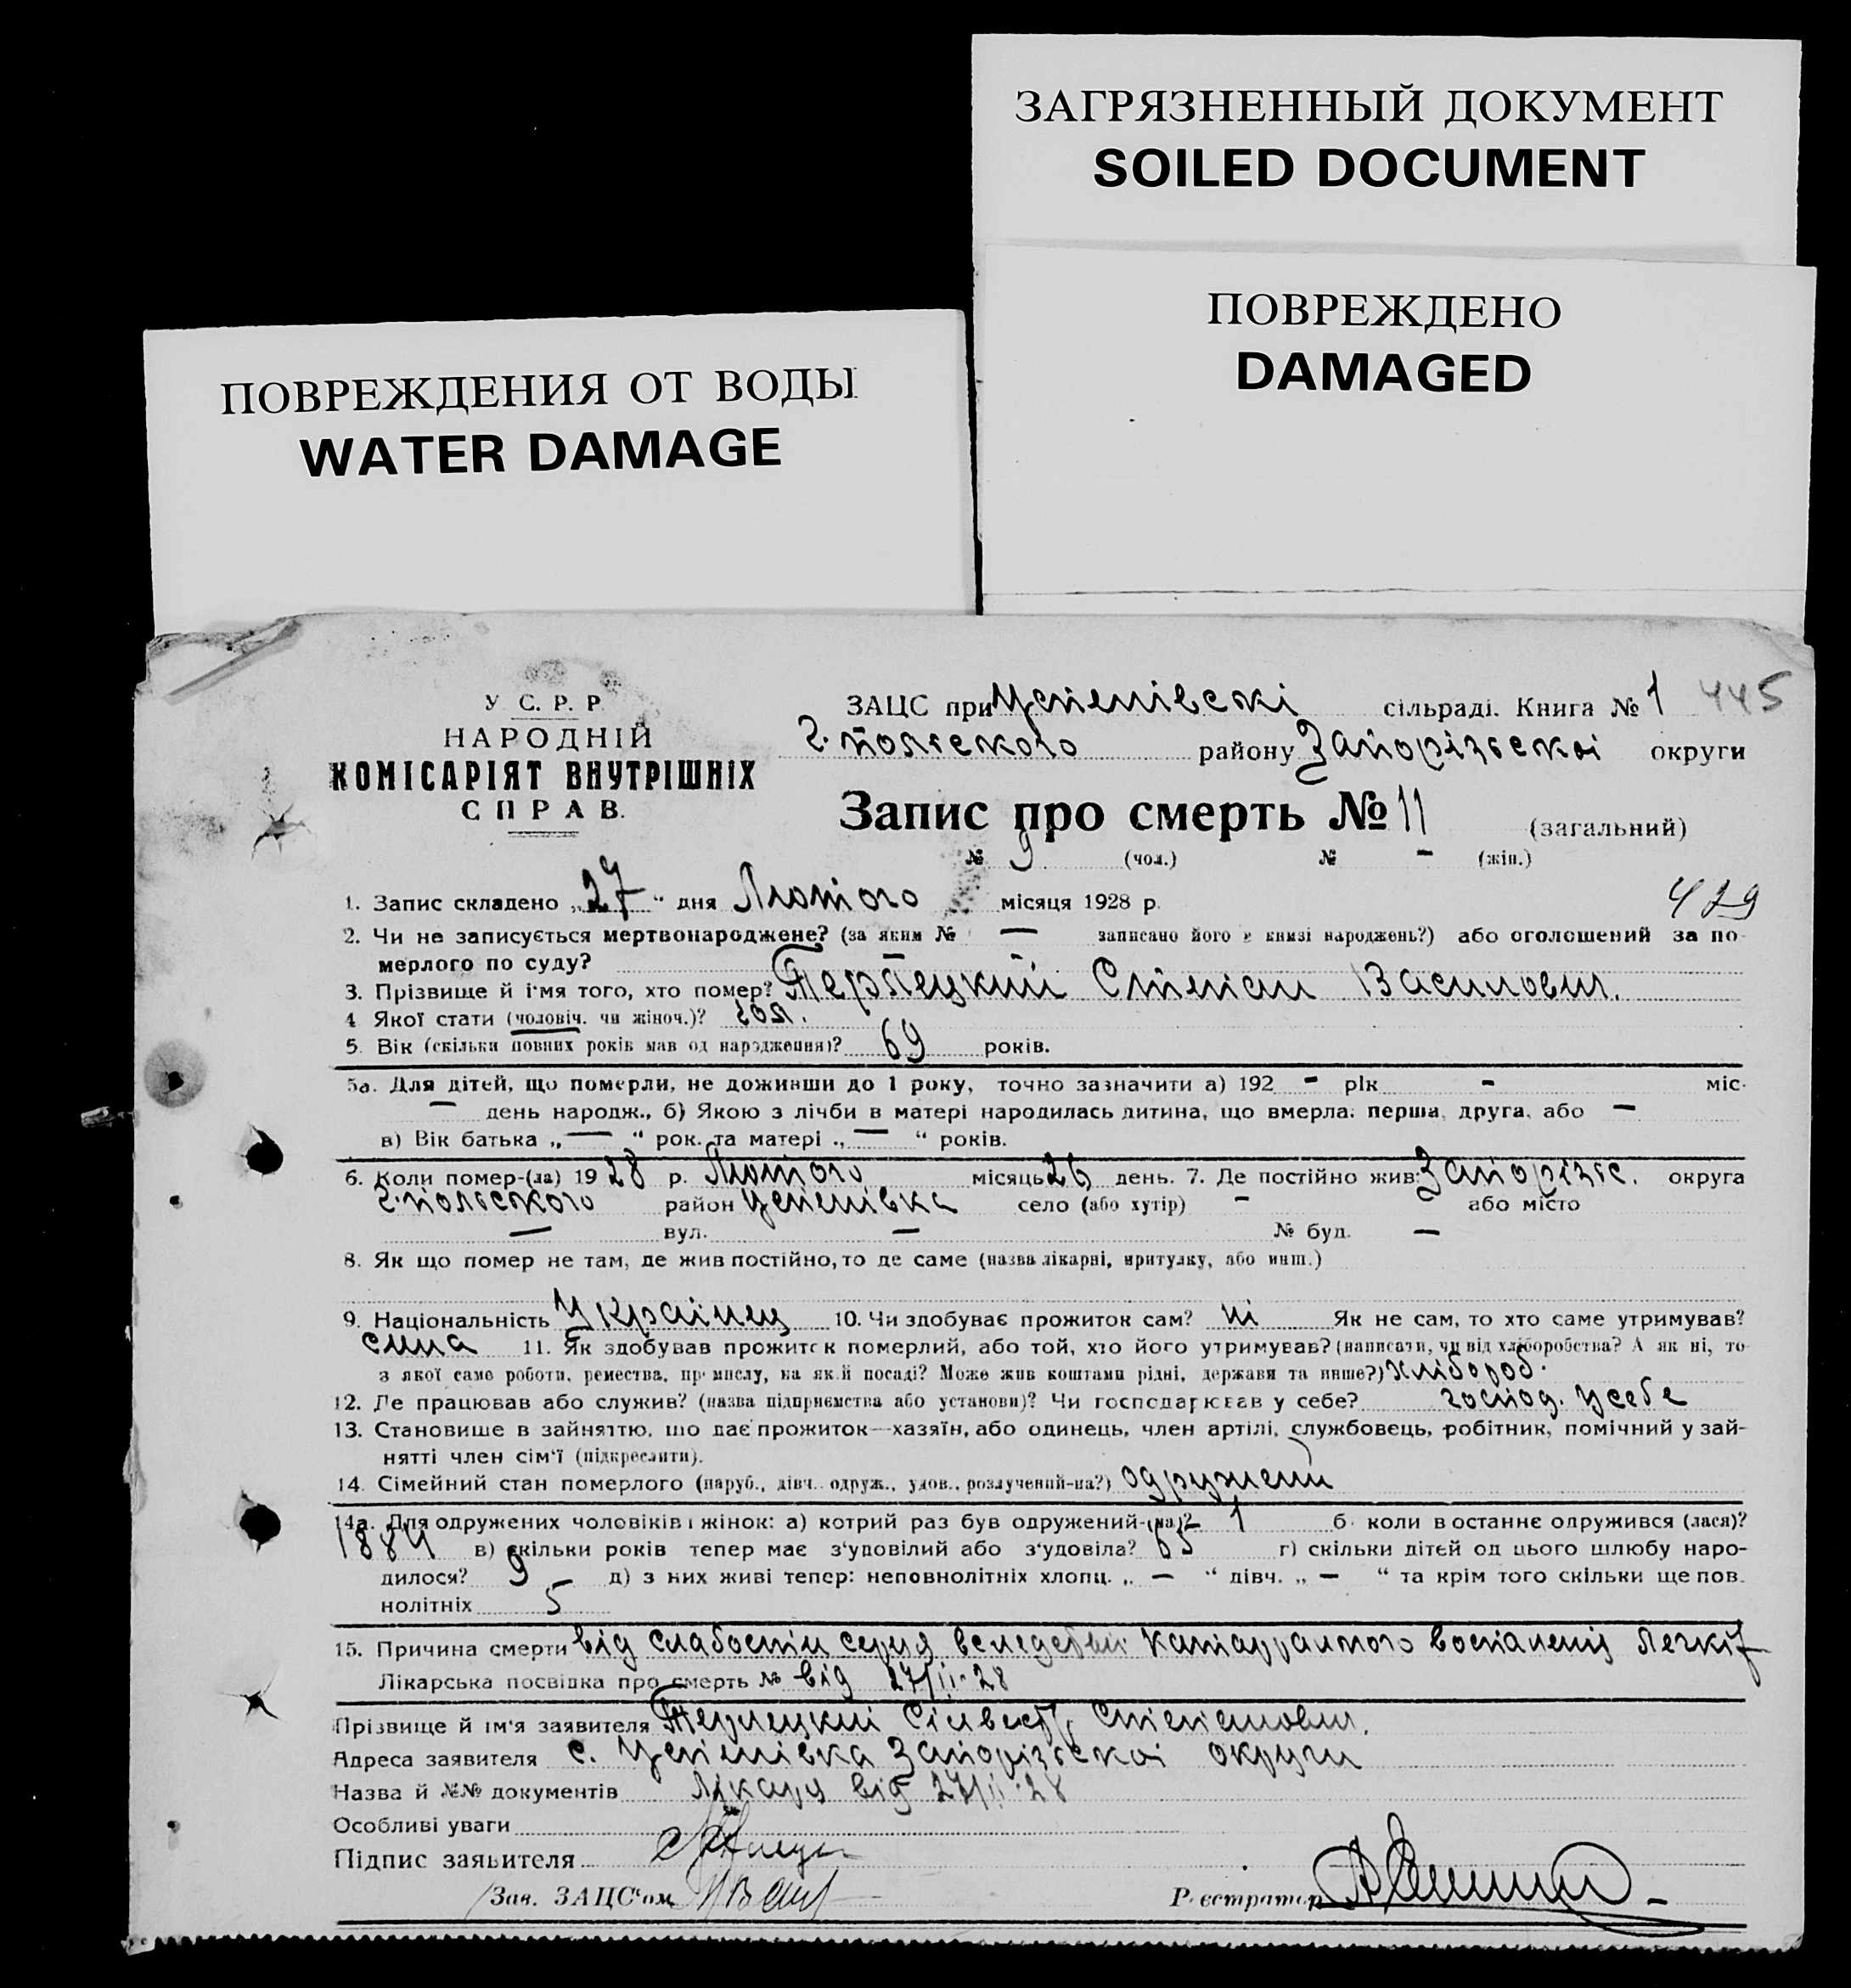 ЗАГРЯЗНЕННЫЙ ДОКУМЕНТ
SOILED DOCUMENT
ПОВРЕЖДЕНО
DAMAGED
ПОВРЕЖДЕНИЯ ОТ ВОДЫ
WATER DAMAGE
У С. Р. Р.
НАРОДНІЙ
КОМІСАРІЯТ ВНУТРІШНІХ
СПРАВ.
ЗАЦС при Успенівскі сільраді. Книга № 1 445
г. польского району Запорізьскоі округи
Запис про смерть № 11 (загальний)
№ 9 (чол.) № - (жін.)
1. Запис складено „27" дня Лютого місяця 1928 р.
429
2. Чи не записується мертвонароджене? (за яким № — записано його в книзі народжень?) або оголошений за по-
мерлого по суду? —
3. Прізвище й ім'я того, хто помер? Степан Василович.
4 Якої стати (чоловіч. чи жіноч.)? чол.
5. Вік (скільки повних років мав од народження)? 69 років.
5а. Для дітей, що померли, не доживши до 1 року, точно зазначити а) 192 - рік - міс.
— день народж., б) Якою з лічби в матері народилась дитина, що вмерла: перша, друга, або —
в) Вік батька „—" рок. та матері „—" років.
6. Коли помер-(ла) 1928 р. Лютого місяць 26 день. 7. Де постійно жив: Запорізьс. округа
г. польского район Успенівка село (або хутір) - або місто
— вул. — № буд. —
8. Як що помер не там, де жив постійно, то де саме (назва лікарні, притулку, або инш.)
9. Національність Украінец 10. Чи здобуває прожиток сам? ні Як не сам, то хто саме утримував?
сина 11. Як здобував прожиток померлий, або той, хто його утримував? (написати, чи від хліборобства? А як ні, то
з якої саме роботи, ремества, промислу, на якій посаді? Може жив коштами рідні, держави та инше?) хлібороб.
12. Де працював або служив? (назва підприємства або установи)? Чи господарював у себе? господ. у себе
13. Становище в зайняттю, що дає прожиток—хазяїн, або одинець, член артілі, службовець, робітник, помічний у зай-
нятті член сім'ї (підкреслити).
14. Сімейний стан померлого (паруб., дівч. одруж., удов., розлучений-на?) одружени
14а. Для одружених чоловіків і жінок: а) котрий раз був одружений-(на)? 1 б. коли востаннє одружився (лася)?
1884 в) скільки років тепер має з'удовілий або з'удовіла? 65 г) скільки дітей од цього шлюбу наро-
дилося? 9 д) з них живі тепер: неповнолітніх хлопц. „ — " дівч. „ — " та крім того скільки ще пов.
нолітніх 5
15. Причина смерти від слабостіи серця катаррального воспаленія Легкіх
Лікарська посвідка про смерть № від 27/II-28
Прізвище й ім'я заявителя Терлецкий Сілвестр Степанович.
Адреса заявителя с. Успенівка Запорізьскоі округи
Назва й №№ документів Лікаря від 27/II-28
Особливі уваги
Підпис заявителя
Зав. ЗАЦС'ом
Реєстратор